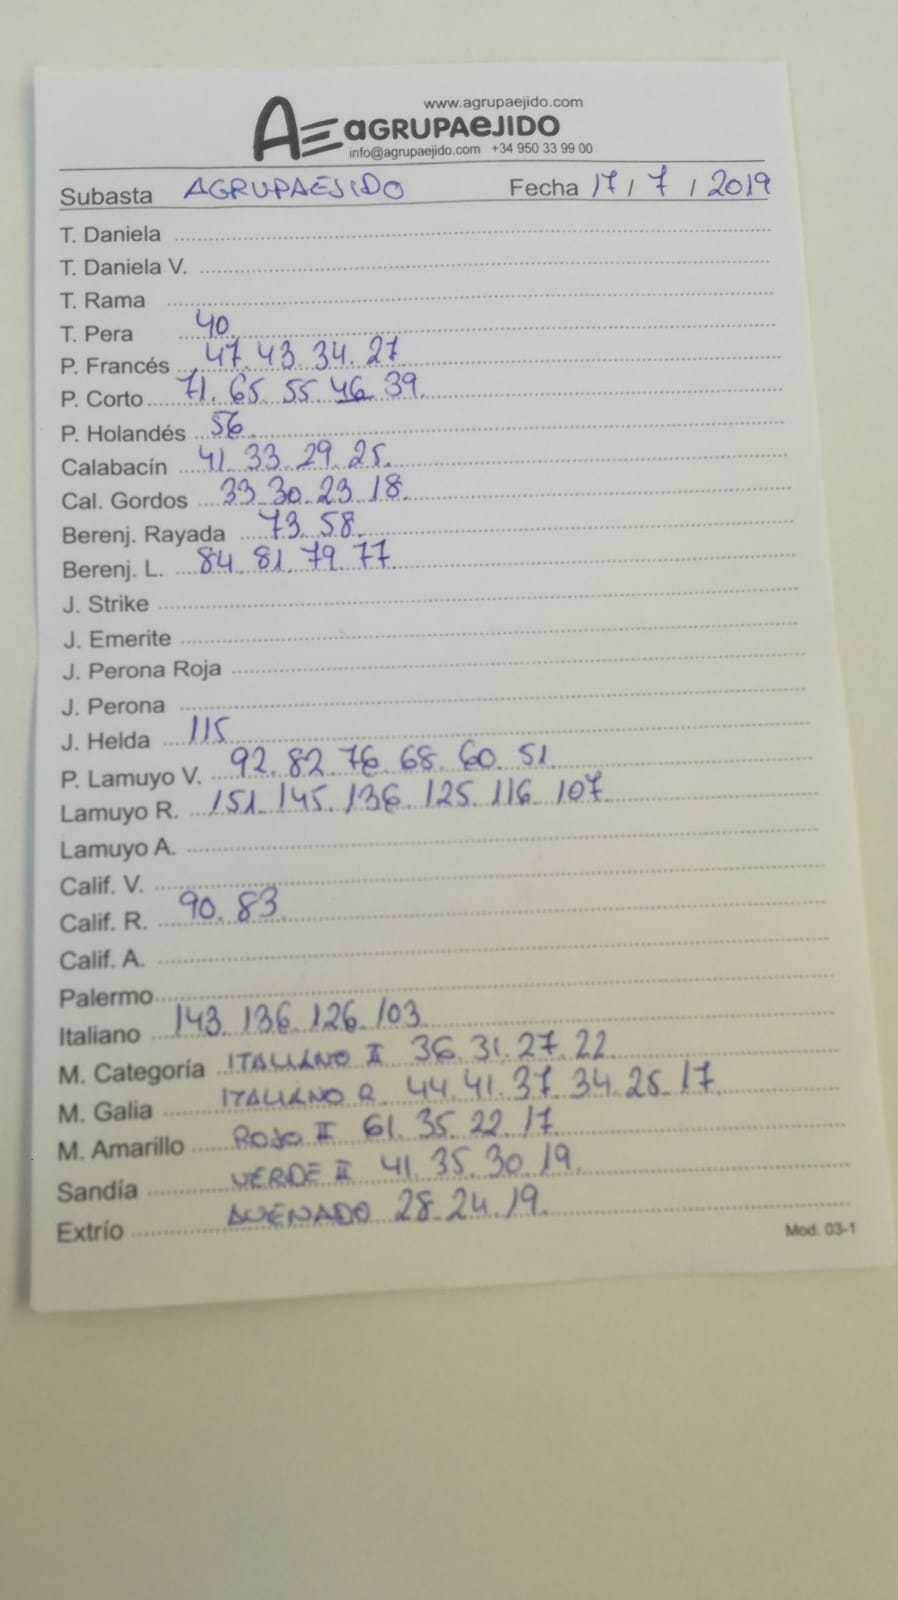 www.agrupaejido.com
AE aGRUPAeJIDO
info@agrupaejido.com +34 950 33 99 00
Subasta AGRUPAEJIDO Fecha 17 / 7 / 2019
T. Daniela
T. Daniela V.
T. Rama
T. Pera 40.
P. Francés 47. 43. 34. 27
P. Corto 71. 65. 55. 46. 39.
P. Holandés 56.
Calabacín 41. 33. 29. 25.
Cal. Gordos 33. 30. 23. 18.
Berenj. Rayada 73. 58.
Berenj. L. 84. 81. 79. 77.
J. Strike
J. Emerite
J. Perona Roja
J. Perona
J. Helda 115
P. Lamuyo V. 92. 82. 76. 68. 60. 51.
Lamuyo R. 151. 145. 136. 125. 116. 107.
Lamuyo A.
Calif. V.
Calif. R. 90. 83.
Calif. A.
Palermo
Italiano 143. 136. 126. 103.
M. Categoría ITALIANO II 36. 31. 27. 22
M. Galia ITALIANO R. 44. 41. 37. 34. 26. 17.
M. Amarillo ROJO II 61. 35. 22. 17.
Sandía VERDE II 41. 35. 30. 19.
Extrío AVENADO 28. 24. 19.
Mod. 03-1